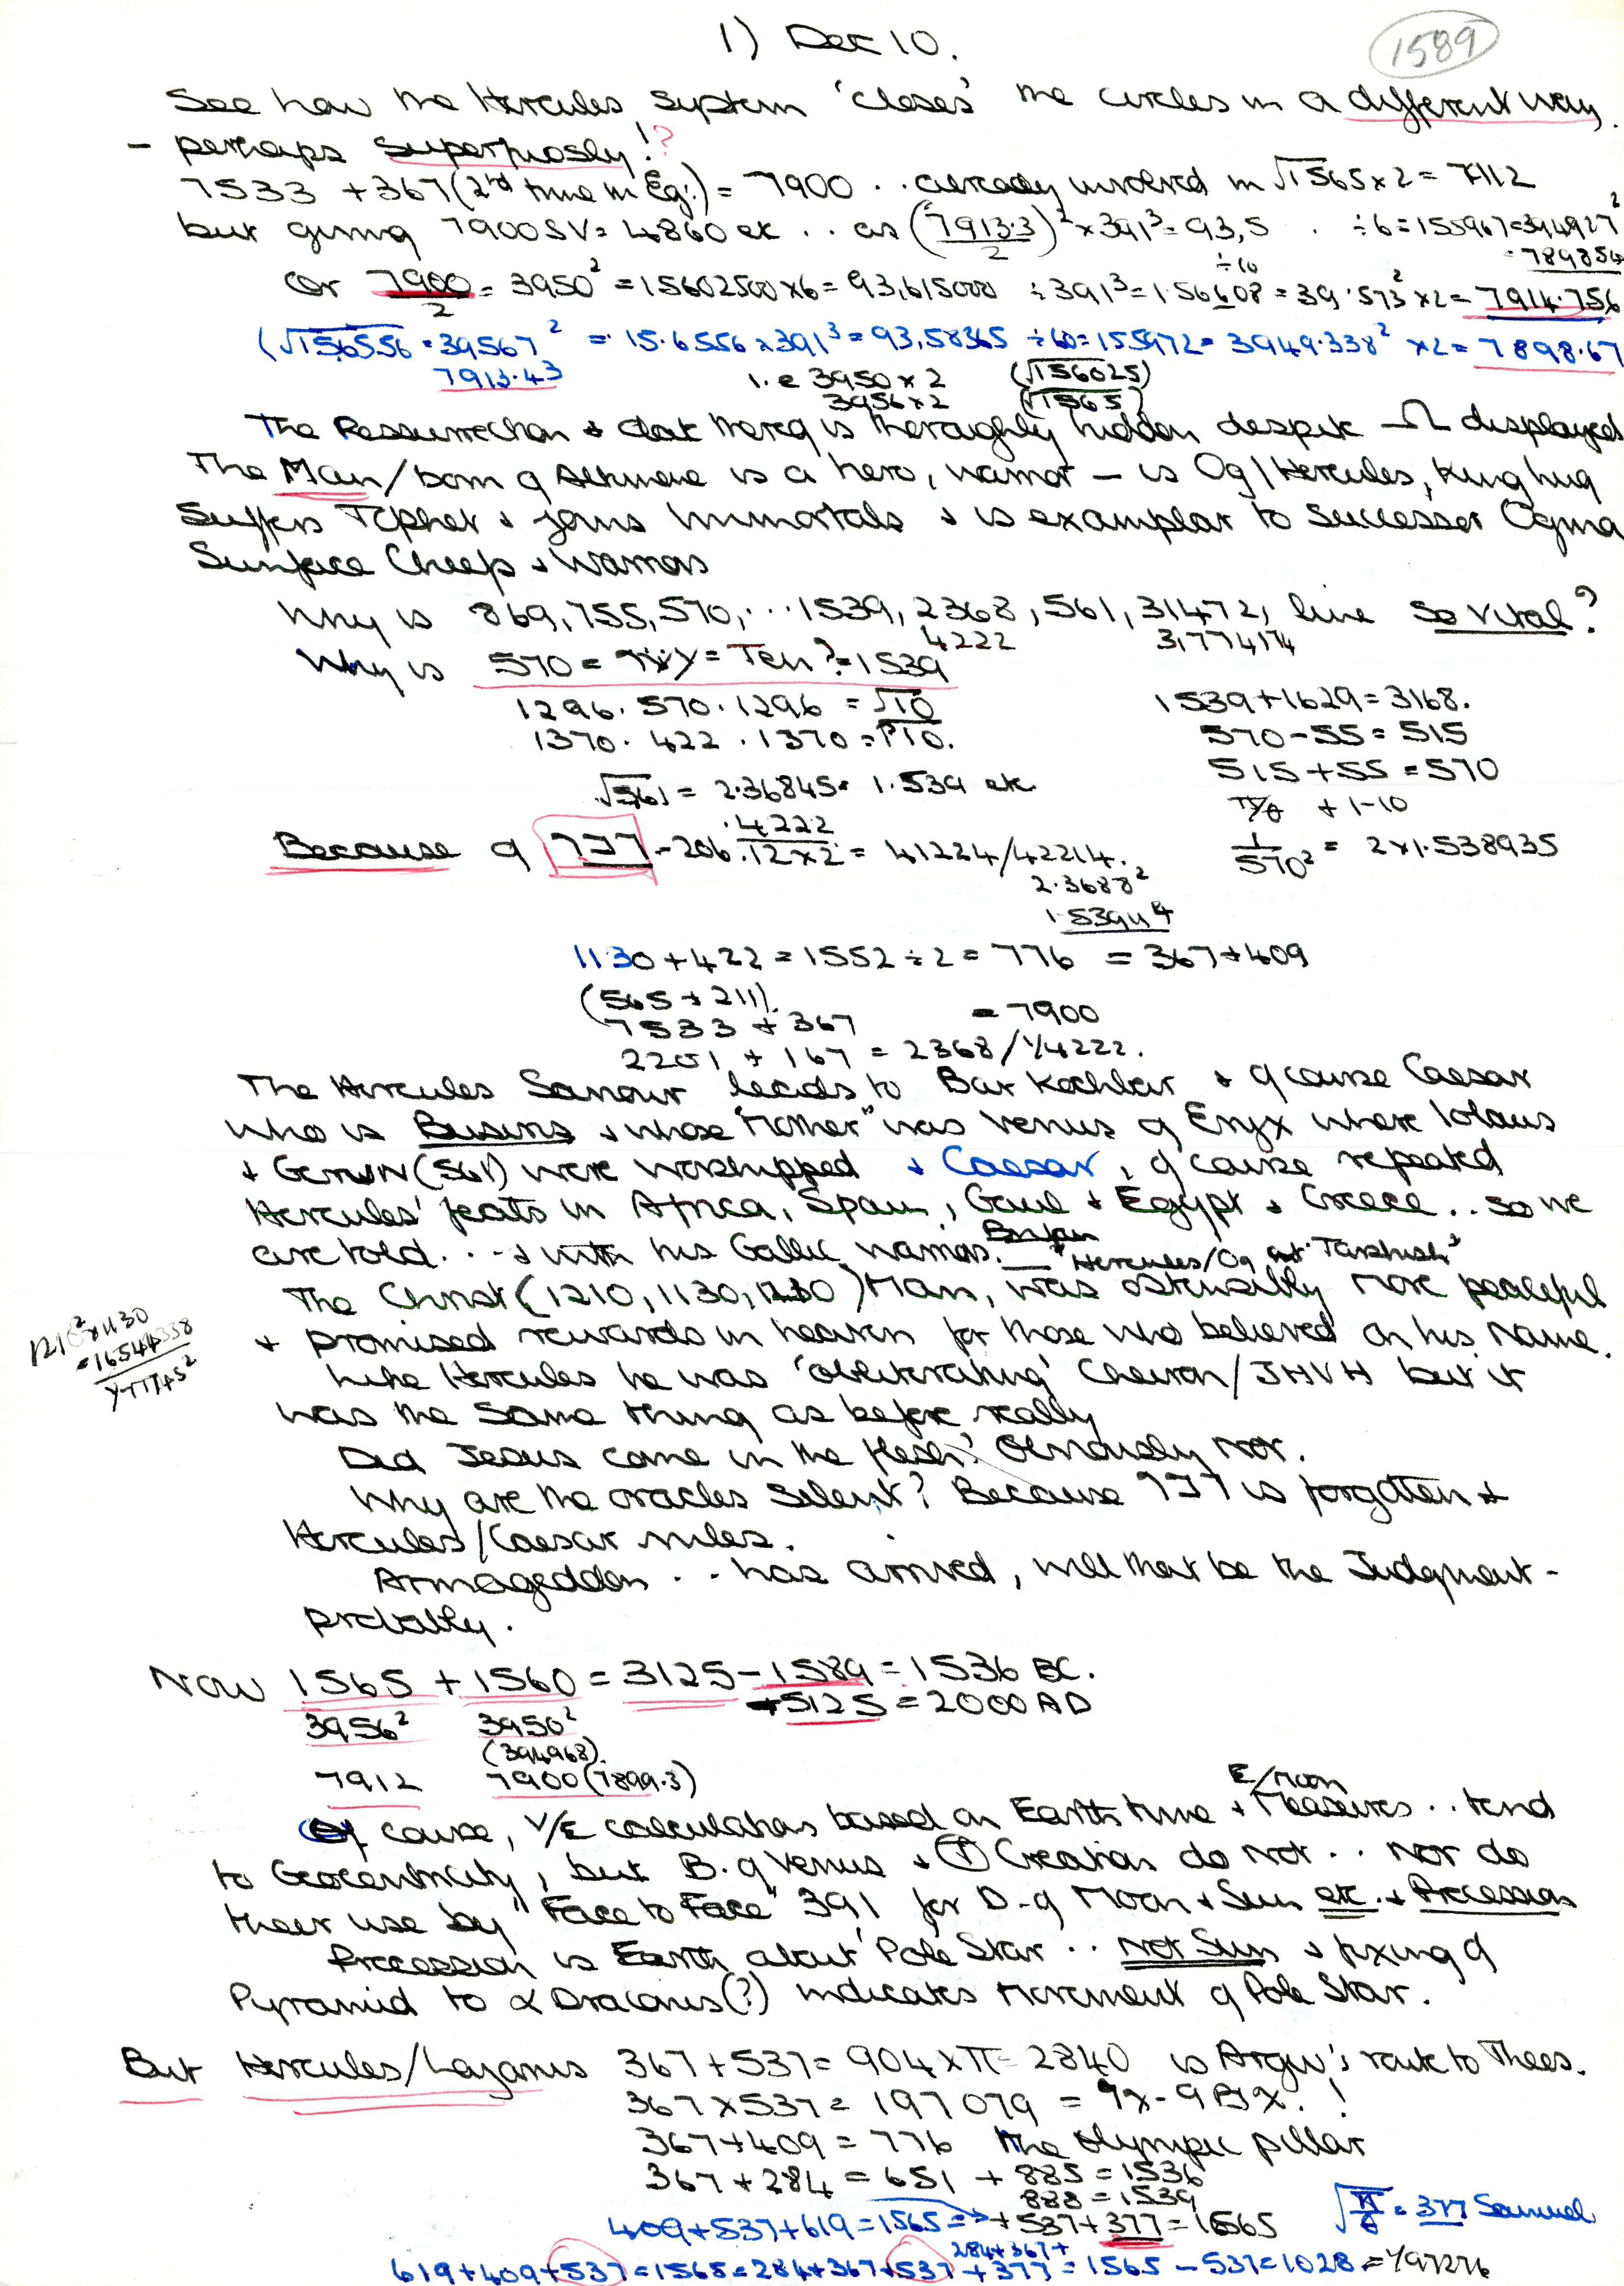 1) Dec 10.
1589
See how the Hercules system 'closes' the circles in a different way.
- perhaps superfluosly!?
7533 + 367 (2nd time in Eg.) = 7900 .. already involved in √1565 x 2 = 7912
but giving 7900 SV = 4860 etc .. as (7913.3/2)² x 391³ = 93,5 . ÷6 = 155967 = 394927²
= 789854
or 7900/2 = 3950² = 15602500 x 6 = 93,615000 ÷ 391³ = 1.56608 = 39.573² x 2 = 7914.756
÷10
(√156556 = 39567² = 15.6556 x 391³ = 93,58365 ÷ 60 = 155972 = 3949.338² x 2 = 7898.67
7913.43
i.e 3950 x 2 (√156025)
3956 x 2 (√1565)
The Resurrection & date thereof is thoroughly hidden despite Ω displayed
The Man/born of Alkmene is a hero, warrior - is Og/Hercules, King
Suffers Tophet & joins Immortals & is examplar to successor Ogma
Sunface Cheops & warriors
Why is 869, 755, 570, ... 1539, 2368, 561, 31472, line so vital?
4222 3,774174
Why is 570 = = Ten? = 1539
1296 . 570 . 1296 = √10
1370 . 422 . 1370 = PTO.
1539 + 1629 = 3168.
570 - 55 = 515
515 + 55 = 570
+ 1-10
√561 = 2.36845 = 1.539 etc.
Because of 737 - 206 . 4222/12 x 2 = 41224/42214.
2.3688²
1.5394⁴
1/570² = 2 x 1.538935
1130 + 422 = 1552 ÷ 2 = 776 = 367 + 409
(565 + 211)
7533 + 367 = 7900
2201 + 167 = 2368 / 1/4222.
The Hercules Saviour leads to Bar Kochbar & of course Caesar
who is Busiris & whose "Mother" was Venus of Eryx where Iolaus
& Geryon (561) were worshipped & Caesar, of course repeated
Hercules' feats in Africa, Spain, Gaul & Egypt & Greece .. so we
are told . . . & with his Gallic warriors. "Hercules/Og at 'Tarshish'"
The Christ (1210, 1130, 1230) Man, was ostensibly more peaceful
& promised rewards in heaven for those who believed on his name.
1210² x 1130
= 1654433
Like Hercules he was 'obliterating' Cheiron/JHVH but it
was the same thing as before really
Did Jesus come in the flesh? Obviously not.
Why are the oracles silent? Because 737 is forgotten &
Hercules/Caesar rules.
Armageddon . . has arrived, will that be the Judgment -
probably.
Now 1565 + 1560 = 3125 - 1589 = 1536 BC.
+5125 = 2000 AD
3956² 3950²
(394968)
7912 7900 (7899.3)
E/Moon
Of course, V/E calculations based on Earth time & Measures .. tend
to Geocentricity, but B. of Venus & Creation do not .. Nor do
their use by "Face to Face" 391 for D - of Moon & Sun etc. & Precession
Precession is Earth about Pole Star .. Not Sun & fixing of
Pyramid to α Draconis (?) indicates movement of Pole Star.
But Hercules/Lazarus 367 + 537 = 904 x π = 2840 is Argus's route to Thebes.
367 x 537 = 197079 = !
367 + 409 = 776 the olympic pillar
367 + 284 = 651 + 885 = 1536
888 = 1539
409 + 537 + 619 = 1565 = → + 537 + 377 = 1565
√π/6 = 377 Samuel
284 + 367 +
619 + 409 + 537 = 1565 = 284 + 367 + 537 + 377 = 1565 - 537 = 1028 = 1/97276